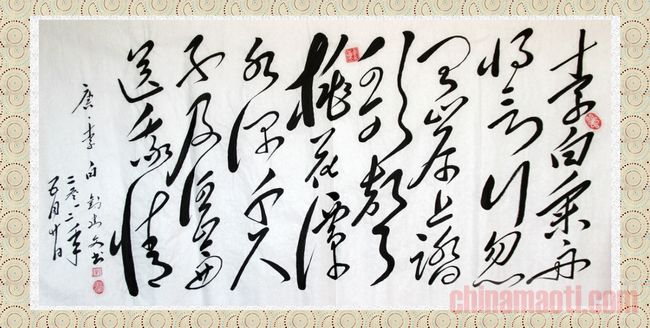 李白乘舟
将欲行忽
闻岸上踏
歌声
桃花潭
水深千尺
不及汪伦
送我情
唐·李白
书
二〇一二年
五月廿日
chinamaoti.com